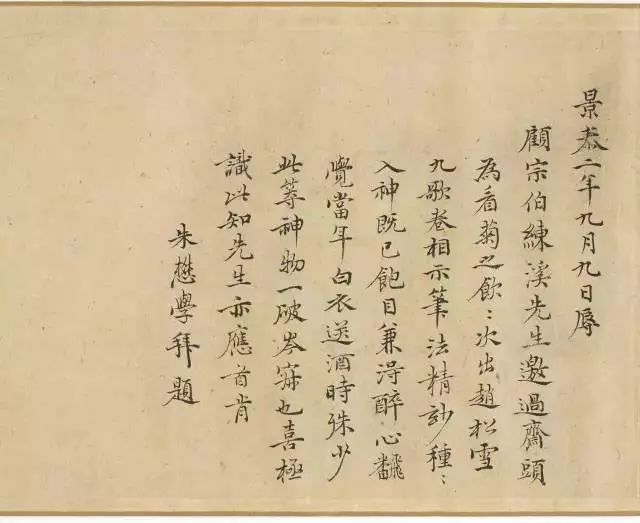 景泰二年九月九日辱
顧宗伯練溪先生邀過齋頭
為看菊之飲〻次出趙松雪
九歌卷相示筆法精妙種〻
入神既已飽目兼淂醉心飜
覺當年白衣送酒時殊少
此等神物一破岑寂也喜極
識此知先生亦應首肯
朱懋學拜題